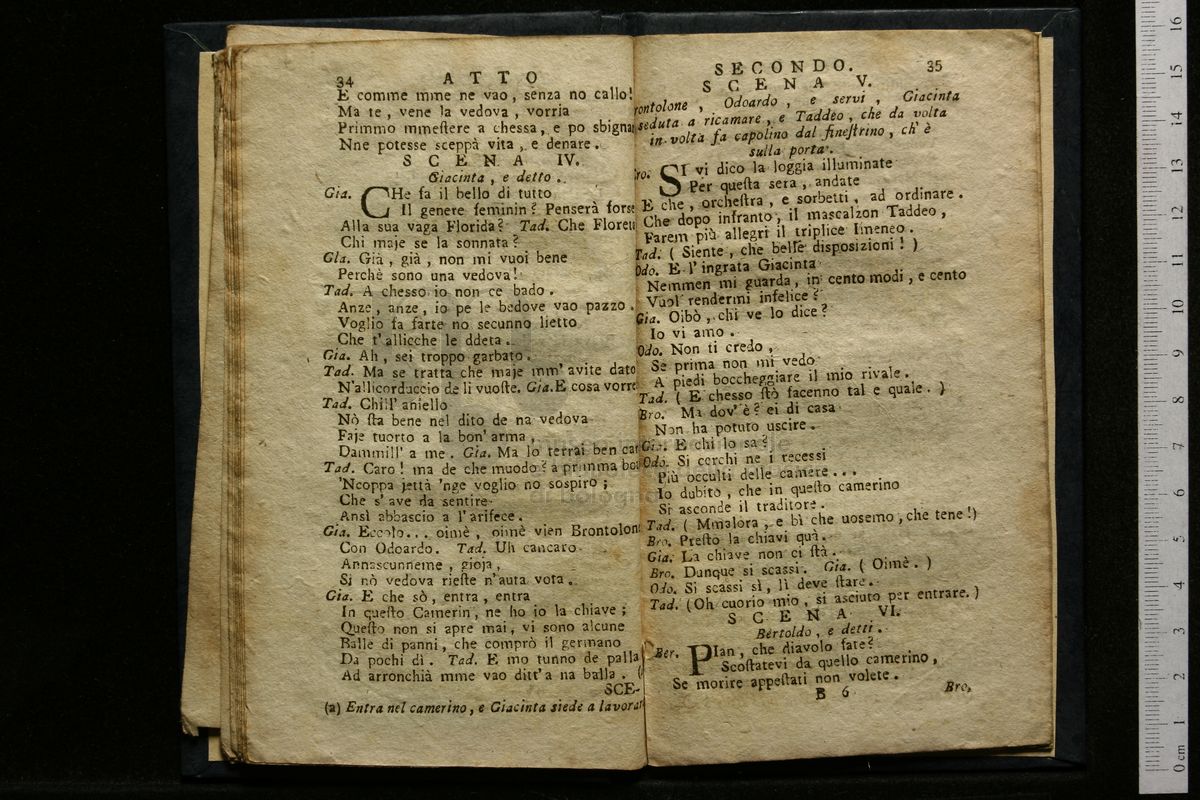 34 ATTO
E comme mme ne vao, senza no callo!
Ma te, vene la vedova, vorria
Primmo mmeſtere a chessa, e po sbignar
Nne potesse sceppà vita, e denare.
SCENA IV.
Giacinta, e detto.
Gia. CHe fa il bello di tutto
Il genere feminin? Penserà forse
Alla sua vaga Florida? Tad. Che
Chi maje se la sonnata?
Gia. Già, già, non mi vuoi bene
Perchè sono una vedova!
Tad. A chesso io non ce bado.
Anze, anze, io pe le bedove vao pazzo.
Voglio fa farte no secunno lietto
Che t'allicche le ddeta.
Gia. Ah, sei troppo garbato.
Tad. Ma se tratta che maje mm' avite dato
N'allicorduccio de li vuoſte. Gia. E cosa
Tad. Chill' aniello
Nò ſta bene nel dito de na vedova
Faje tuorto a la bon' arma,
Dammill' a me. Gia. Ma lo terrai ben
Tad. Caro! ma de che muodo? a primma
'Ncoppa jettà 'nge voglio no sospiro;
Che s' ave da sentire
Ansì abbascio a l' arifece.
Gia. Eccolo... oimè, oimè vien
Con Odoardo. Tad. Uh cancaro
Annascunneme, gioja,
Si nò vedova rieſte n'auta vota.
Gia. E che sò, entra, entra
In queſto Camerin, ne ho io la chiave;
Queſto non si apre mai, vi sono alcune
Balle di panni, che comprò il germano
Da pochi dì. Tad. E mo tunno de palla
Ad arronchià mme vao ditt'a na balla. (
SCE-
(a) Entra nel camerino, e Giacinta siede a
SECONDO. 35
SCENA V.
rontolone, Odoardo, e servi, Giacinta
seduta a ricamare, e Taddeo, che da volta
in volta fa capolino dal fineſtrino, ch' è
sulla porta.
ro. SI vi dico la loggia illuminate
Per queſta sera, andate
E che, orcheſtra, e sorbetti, ad ordinare.
Che dopo infranto, il mascalzon Taddeo,
Farem più allegri il triplice Imeneo.
Tad. ( Siente, che belle disposizioni! )
Odo. E l' ingrata Giacinta
Nemmen mi guarda, in cento modi, e cento
Vuol rendermi infelice?
Gia. Oibò, chi ve lo dice?
Io vi amo.
Odo. Non ti credo,
Se prima non mi vedo
A piedi boccheggiare il mio rivale.
Tad. ( E chesso ſtò facenno tal e quale. )
Bro. Ma dov' è? ei di casa
Non ha potuto uscire.
Gia. E chi lo sa?
Odo. Si cerchi ne i recessi
Più occulti delle camere...
Io dubito, che in queſto camerino
Si asconde il traditore.
Tad. ( Mmalora, e bì che uosemo, che tene!)
Bro. Preſto la chiavi quà.
Gia. La chiave non ci ſtà.
Bro. Dunque si scassi. Gia. ( Oimè. )
Odo. Si scassi sì, lì deve ſtare.
Tad. (Oh cuorio mio, si asciuto per entrare.)
SCENA VI.
Bertoldo, e detti.
Ber. PIan, che diavolo fate?
Scoſtatevi da quello camerino,
Se morire appeſtati non volete.
B 6 Bro,
0 cm 1 2 3 4 5 6 7 8 9 10 11 12 13 14 15 16